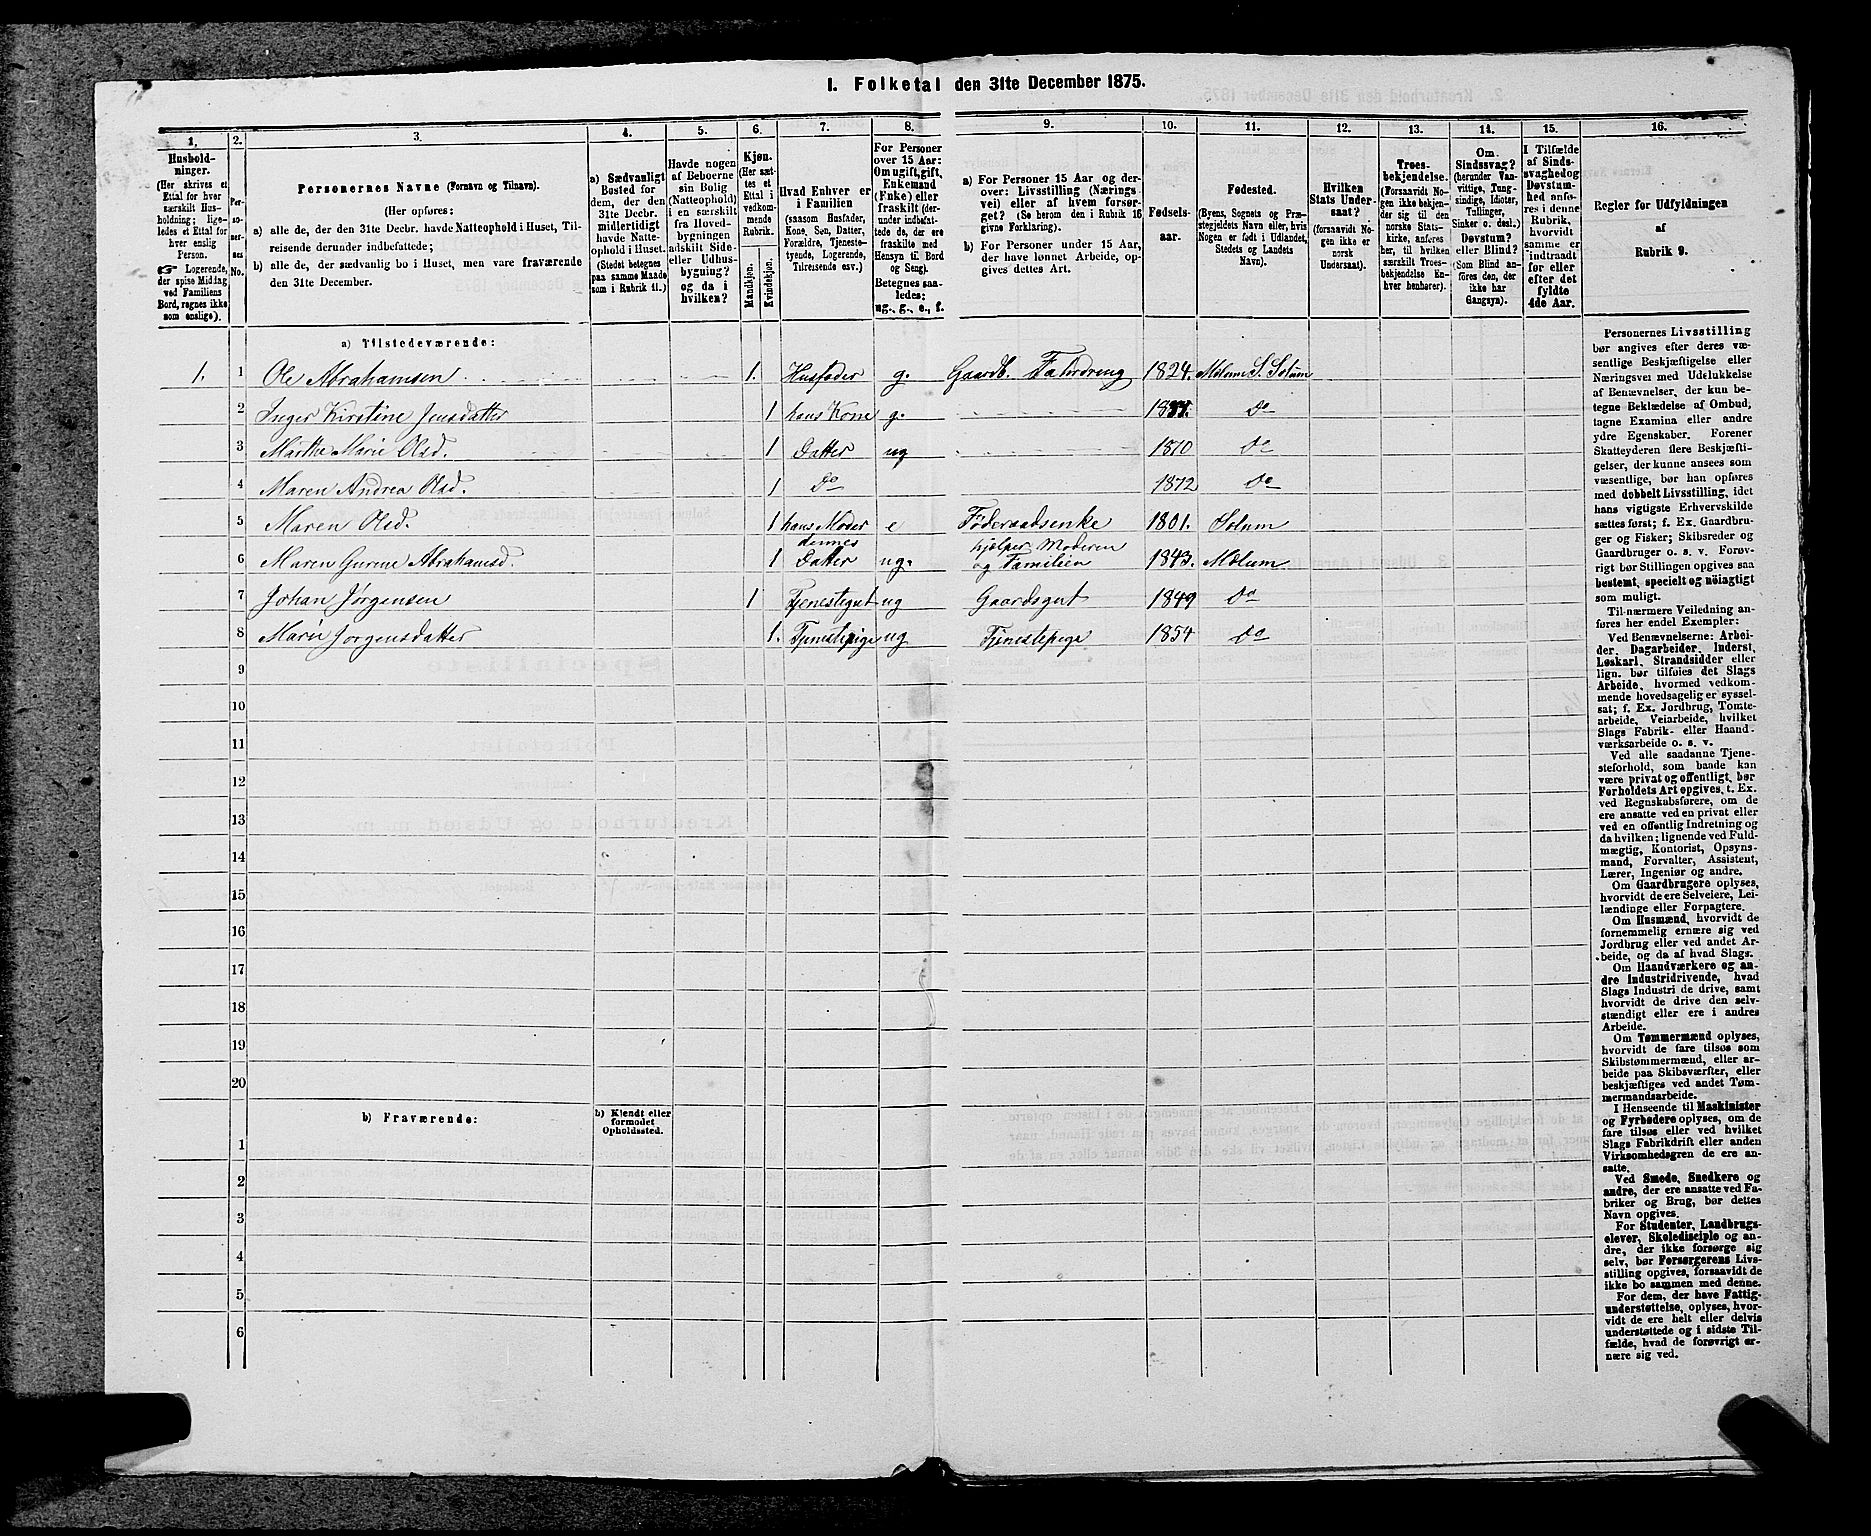 I. Folketal den 31te December 1875.
1. 2. 3. 4. 5. 6. 7. 8. 9. 10. 11. 12. 13. 14. 15. 16.
Husholdninger.
(Her skrives et
Ettal for hver
særskilt Hus-
holdning; lige-
ledes et Ettal for
hver enslig
Person.
☞ Logerende,
der spise Middag
ved Familiens
Bord, regnes ikke
som enslige).
Per-
so-
ner-
nes
No.
Personernes Navne (Fornavn og Tilnavn).
(Her opføres:
a) alle de, der den 31te Decbr. havde Natteophold i Huset, Til-
reisende derunder indbefattede;
b) alle de, der sædvanlig bo i Huset, men vare fraværende
den 31te December.
a) Sædvanligt
Bosted for
dem, der den
31te Decbr.
midlertidigt
havde Natte-
ophold i Huset.
(Stedet betegnes
paa samme Maade
som i Rubrik 11.)
Havde nogen
af Beboerne
sin Bolig
(Natteophold)
i en særskilt
fra Hoved-
bygningen
adskilt Side-
eller Udhus-
bygning?
og da i
hvilken?
Kjøn.
(Her sæt-
tes et
Ettal i
vedkom-
mende
Rubrik.
Mandkjøn.
Kvindekjøn.
Hvad Enhver er
i Familien
(saasom Husfader,
Kone, Søn, Datter,
Forældre, Tjeneste-
tyende, Logerende,
Tilreisende osv.)
For Personer
over 15 Aar:
Om ugift, gift,
Enkemand
(Enke) eller
fraskilt (der-
under indbefat-
tede de, der ere
fraskilte med
Hensyn til Bord
og Seng).
Betegnes saa-
ledes:
ug., g., e., f.
a) For Personer 15 Aar og der-
over: Livsstilling (Nærings-
vei) eller af hvem forsør-
get? (Se herom den i Rubrik 16
givne Forklaring).
b) For Personer under 15 Aar,
der have lønnet Arbeide, op-
gives dettes Art.
Fødsels-
aar.
Fødested.
(Byens, Sognets og Præ-
stegjeldets Navn eller, hvis
Nogen er født i Udlandet,
Stedets og Landets
Navn).
Hvilken
Stats Under-
saat?
(forsaavidt No-
gen ikke er
norsk
Undersaat).
Troes-
bekjendelse.
(Forsaavidt No-
gen ikke bekjen-
der sig til den
norske Stats-
kirke, anføres
her, til hvilken
særskilt Troes-
bekjendelse En-
hver henhører).
Om
Sindssvag?
(herunder Van-
vittige, Tung-
sindige, Idioter,
Tullinger,
Sinker o. desl.)
Døvstum?
eller Blind?
(Som Blind an-
føres den, der
ikke har
Gangsyn).
I Tilfælde
af Sinds-
svaghed og
Døvstum-
hed anfø-
res i denne
Rubrik,
hvorvidt
samme er
indtraadt
før eller
efter det
fyldte
4de Aar.
Regler for Udfyldningen
af
Rubrik 9.
a) Tilstedeværende:
1. 1 Ole Abrahamsen 1. Husfader g. Gaardb. 1824. Mælum S. Solum
2 Inger Kirstine Jensdatter 1 hans Kone g. Do
3 Marthe Marie Olsd. 1 Datter ug 1870 Do
4 Maren Andrea Olsd. 1 Do 1872 Do
5 Maren Olsd. 1 hans Moder e Føderaadsenke 1801. Solum
6 Maren Gurine Abrahamsd. 1 dennes Datter ug. hjelper Moderen og Familien 1843. Mælum
7 Johan Jørgensen 1 Tjenestegut ug Gaardsgut 1849 Do
8 Marie Jørgensdatter 1. Tjenestepige ug Tjenestepige 1854 Do
9
10
11
12
13
14
15
16
17
18
19
20
b) Fraværende:
b) Kjendt eller
formodet
Opholdssted.
1
2
3
4
5
6
Personernes Livsstilling
bør angives efter deres væ-
sentlige Beskjæftigelse eller
Næringsvei med Udelukkelse
af Benævnelser, der kun be-
tegne Beklædelse af Ombud,
tagne Examina eller andre
ydre Egenskaber. Forener
Skatteyderen flere Beskjæfti-
gelser, der kunne ansees som
væsentlige, bør han opføres
med dobbelt Livsstilling, idet
hans vigtigste Erhvervskilde
sættes først; f. Ex. Gaardbru-
ger og Fisker; Skibsreder og
Gaardbruger o. s. v. Forøv-
rigt bør Stillingen opgives saa
bestemt, specielt og nøiagtigt
som muligt.
Til nærmere Veiledning an-
føres her endel Exempler:
Ved Benævnelserne: Arbei-
der, Dagarbeider, Inderst,
Løskarl, Strandsidder eller
lign. bør tilføies det Slags
Arbeide, hvormed vedkom-
mende hovedsagelig er syssel-
sat; f. Ex. Jordbrug, Tomte-
arbeide, Veiarbeide, hvilket
Slags Fabrik- eller Haand-
værksarbeide o. s. v.
Ved alle saadanne Tjene-
steforhold, som baade kan
være privat og offentligt, bør
Forholdets Art opgives, t. Ex.
ved Regnskabsførere, om de
ere ansatte ved en privat eller
ved en offentlig Indretning og
da hvilken; lignende ved Fuld-
mægtig, Kontorist, Opsyns-
mand, Forvalter, Assistent,
Lærer, Ingeniør og andre.
Om Gaardbrugere oplyses,
hvorvidt de ere Selveiere, Lei-
lændinge eller Forpagtere.
Om Husmænd, hvorvidt de
fornemmelig ernære sig ved
Jordbrug eller ved andet Ar-
beide, og da af hvad Slags.
Om Haandværkere og an-
dre Industridrivende, hvad
Slags Industri de drive, samt
hvorvidt de drive den selv-
stændigt eller ere i andres
Arbeide.
Om Tømmermænd oplyses,
hvorvidt de fare tilsøs som
Skibstømmermænd, eller ar-
beide paa Skibsværfter, eller
beskjæftiges ved andet Tøm-
mermandsarbeide.
I Henseende til Maskinister
og Fyrbødere oplyses, om de
fare tilsøs eller ved hvilket
Slags Fabrikdrift eller anden
Virksomhedsgren de ere an-
satte.
Ved Smede, Snedkere og
andre, der ere ansatte ved Fa-
briker og Brug, bør dettes
Navn opgives.
For Studenter, Landbrugs-
elever, Skoledisciple og an-
dre, der ikke forsørge sig
selv, bør Forsørgerens Livs-
stilling opgives, forsaavidt de
ikke bo sammen med denne.
For dem, der have Fattig-
understøttelse, oplyses, hvor-
vidt de ere helt eller delvis
understøttede og i sidste Til-
fælde, hvad de forøvrigt er-
nære sig ved.